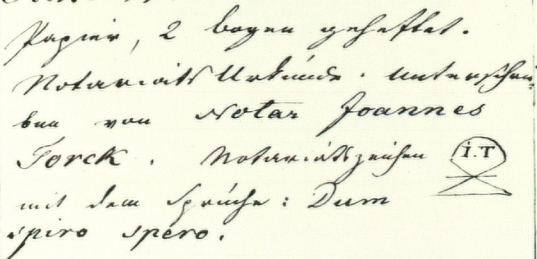 Papier, 2 bogen geheftet.
Notariats Urkunde. Unterschrie-
ben von Notar Joannes
Torck. Notariatszeichen I. T
mit dem Spruche: Dum
spiro spero.